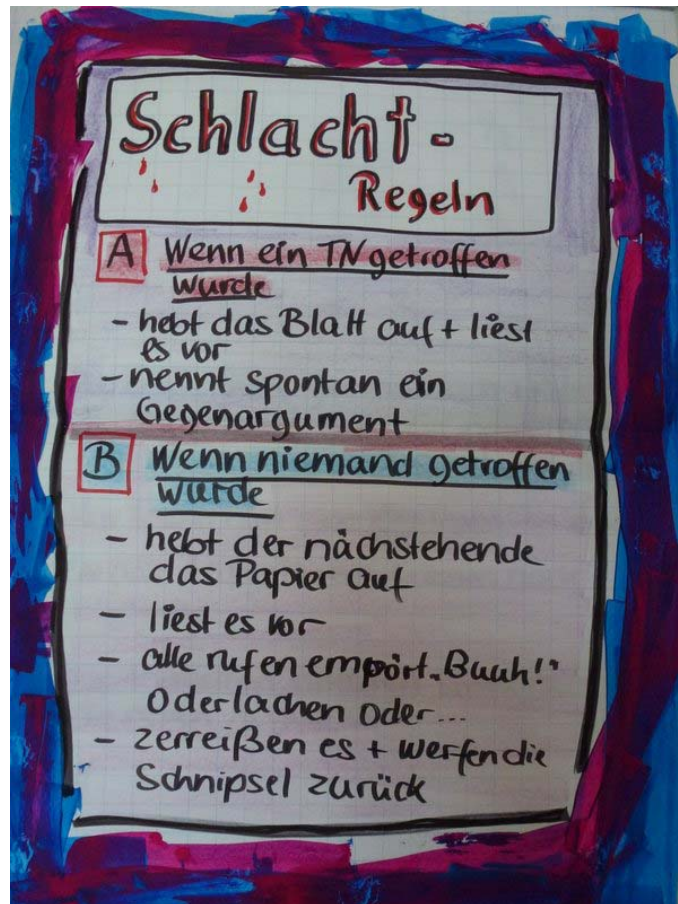 Schlacht-
Regeln
A Wenn ein TN getroffen
wurde
- hebt das Blatt auf + liest
es vor
- nennt spontan ein
Gegenargument
B Wenn niemand getroffen
wurde
- hebt der nächstehende
das Papier auf
- liest es vor
- alle rufen empört „Buuh!"
Oder lachen oder...
- zerreißen es + werfen die
Schnipsel zurück